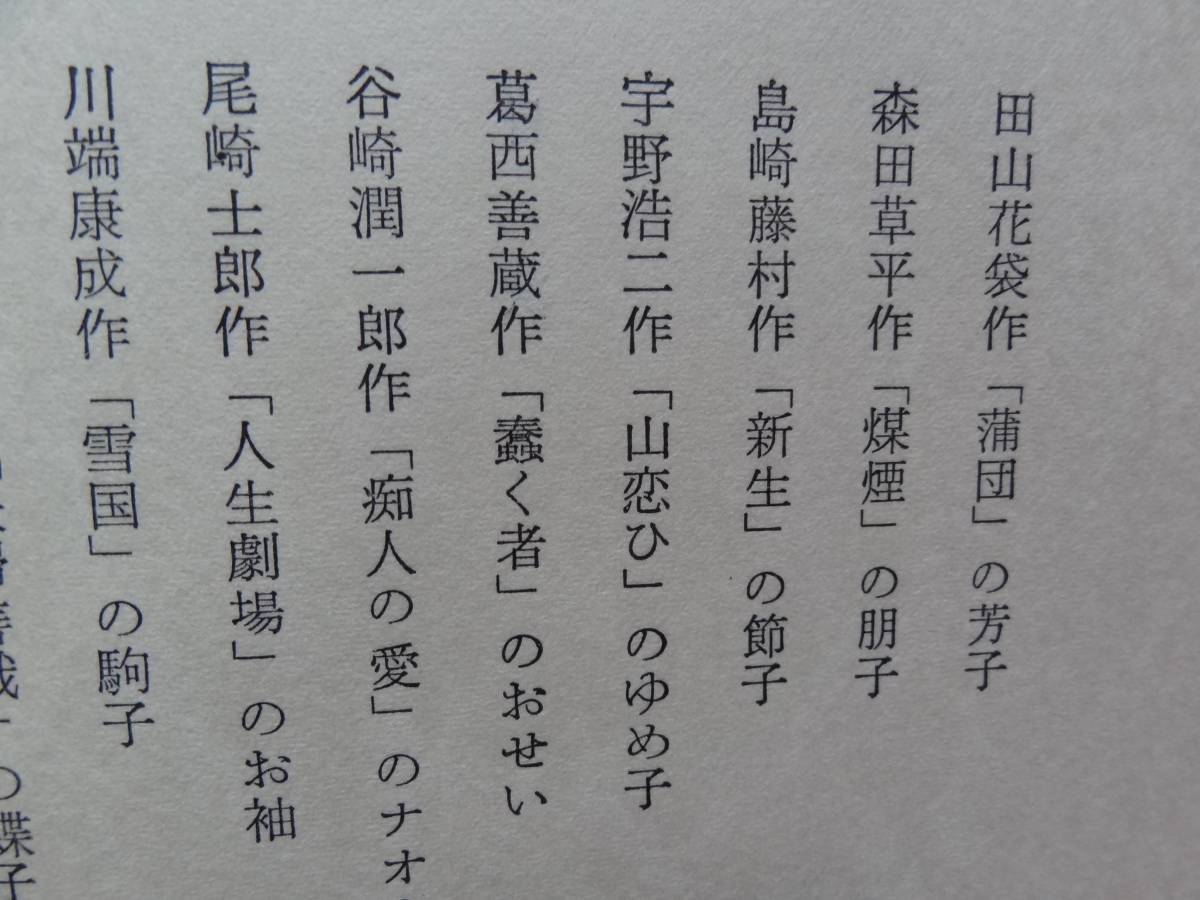 田山花袋作「蒲団」の芳子
森田草平作「煤煙」の朋子
島崎藤村作「新生」の節子
宇野浩二作「山恋ひ」のゆめ子
葛西善蔵作「蠢く者」のおせい
谷崎潤一郎作「痴人の愛」のナオ
尾崎士郎作「人生劇場」のお袖
川端康成作「雪国」の駒子
善哉」の蝶子